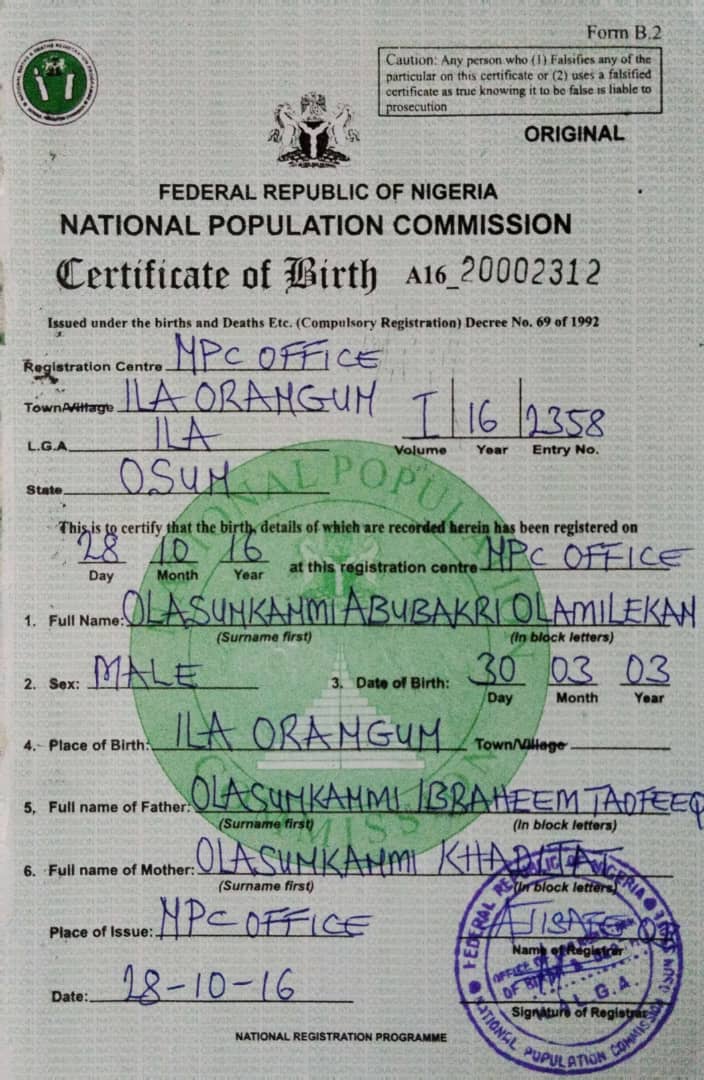 Form B.2
Caution: Any person who (1) Falsifies any of the
particular on this certificate or (2) uses a falsified
certificate as true knowing it to be false is liable to
prosecution
ORIGINAL
FEDERAL REPUBLIC OF NIGERIA
NATIONAL POPULATION COMMISSION
Certificate of Birth A16_20002312
Issued under the births and Deaths Etc. (Compulsory Registration) Decree No. 69 of 1992
Registration Centre NPC OFFICE
Town/Village ILA ORANGUN
I 16 2358
L.G.A. ILA
Volume Year Entry No.
State OSUN
This is to certify that the birth, details of which are recorded herein has been registered on
28 10 16 at this registration centre NPC OFFICE
Day Month Year
1. Full Name: OLASUNKANMI ABUBAKRI OLAMILEKAN
(Surname first) (In block letters)
2. Sex: MALE 3. Date of Birth: 30 03 03
Day Month Year
4. Place of Birth: ILA ORANGUN Town/Village
5, Full name of Father: OLASUNKANMI IBRAHEEM TAOFEEQ
(Surname first) (In block letters)
6. Full name of Mother: OLASUNKANMI KHADIJAT
(Surname first) (In block letters)
Place of Issue: NPC OFFICE
Name of Registrar
Date: 28-10-16
Signature of Registrar
NATIONAL REGISTRATION PROGRAMME
NATIONAL POPULATION COMMISSION
FEDERAL REPUBLIC OF NIGERIA
NATIONAL POPULATION COMMISSION